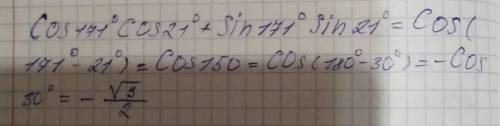 Cos171°Cos21°+Sin171°Sin21°=Cos(
171°-21°)=Cos150=Cos(180°-30°)=-Cos
30°=-√3/2